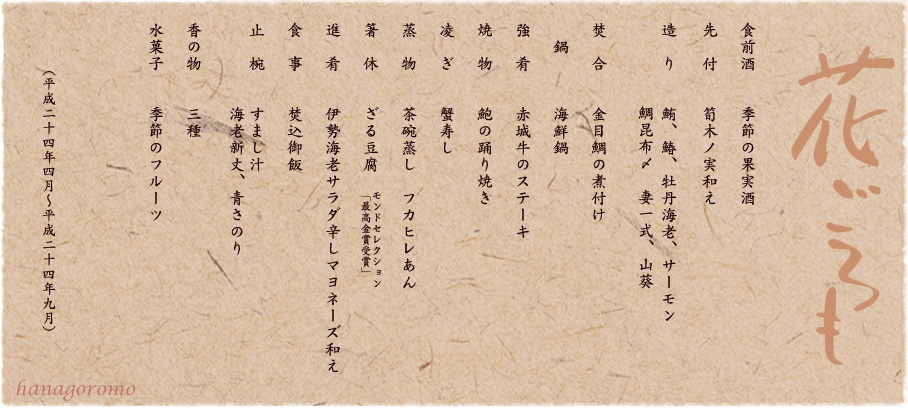 花ごろも
食前酒　季節の果実酒
先付　筍木ノ実和え
造り　鮪、鰆、牡丹海老、サーモン
鯛昆布〆　妻一式、山葵
焚合　金目鯛の煮付け
鍋　海鮮鍋
強肴　赤城牛のステーキ
焼物　鮑の踊り焼き
凌ぎ　蟹寿し
蒸物　茶碗蒸し　フカヒレあん
箸休　ざる豆腐
モンドセレクション
「最高金賞受賞」
進肴　伊勢海老サラダ辛しマヨネーズ和え
食事　焚込御飯
止椀　すまし汁
海老新丈、青さのり
香の物　三種
水菓子　季節のフルーツ
（平成二十四年四月～平成二十四年九月）
hanagoromo